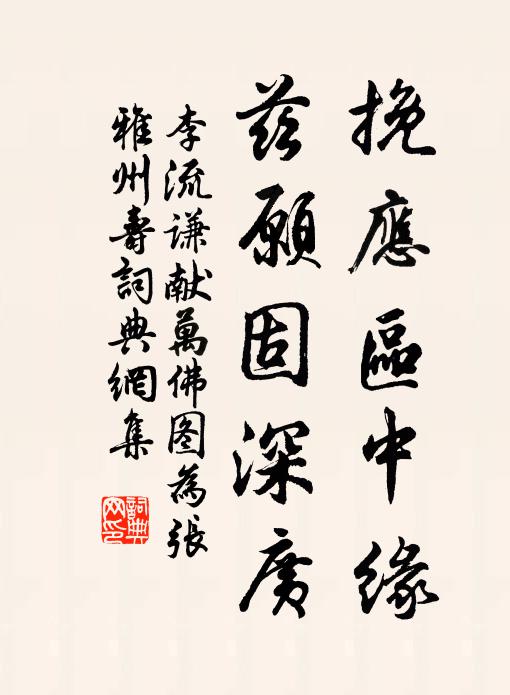 挽應區中緣
茲願固深廣
李流谦献萬佛图為張
雅州壽詞典網集
詞典網印